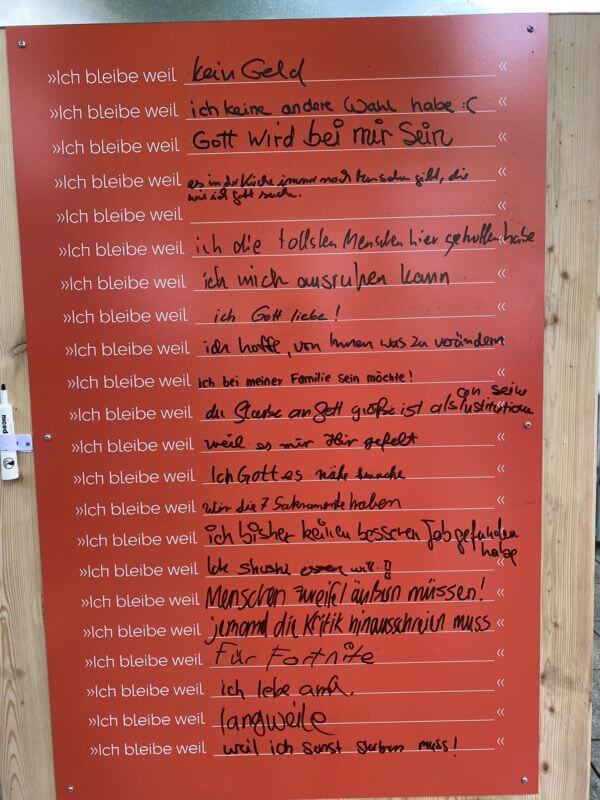 »Ich bleibe weil kein Geld «
»Ich bleibe weil ich keine andere Wahl habe :( «
»Ich bleibe weil Gott wird bei mir sein «
»Ich bleibe weil es in der Kirche immer noch Menschen gibt, die «
wie ich Gott suchen.
»Ich bleibe weil «
»Ich bleibe weil ich die tollsten Menschen hier getroffen habe «
»Ich bleibe weil ich mich ausruhen kann «
»Ich bleibe weil ich Gott liebe! «
»Ich bleibe weil ich hoffe, von Innen was zu verändern «
»Ich bleibe weil ich bei meiner Familie sein möchte! «
»Ich bleibe weil der Glaube an Gott größer ist als an seine Institution «
»Ich bleibe weil weil es mir hir gefelt «
»Ich bleibe weil Ich Gottes nähe brauche «
»Ich bleibe weil wir die 7 Sakramente haben «
»Ich bleibe weil ich bisher keinen besseren Job gefunden «
habe
»Ich bleibe weil Ich essen will «
»Ich bleibe weil Menschen zweifel äußern müssen! «
»Ich bleibe weil jemand die Kritik hinausschreien muss «
»Ich bleibe weil Für Fortnite «
»Ich bleibe weil ich lebe «
»Ich bleibe weil langweile «
»Ich bleibe weil weil ich sonst sterben muss! «